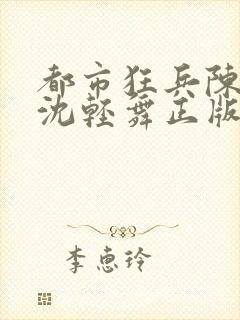 都市狂兵陳
沈輕舞正版
李惠玲